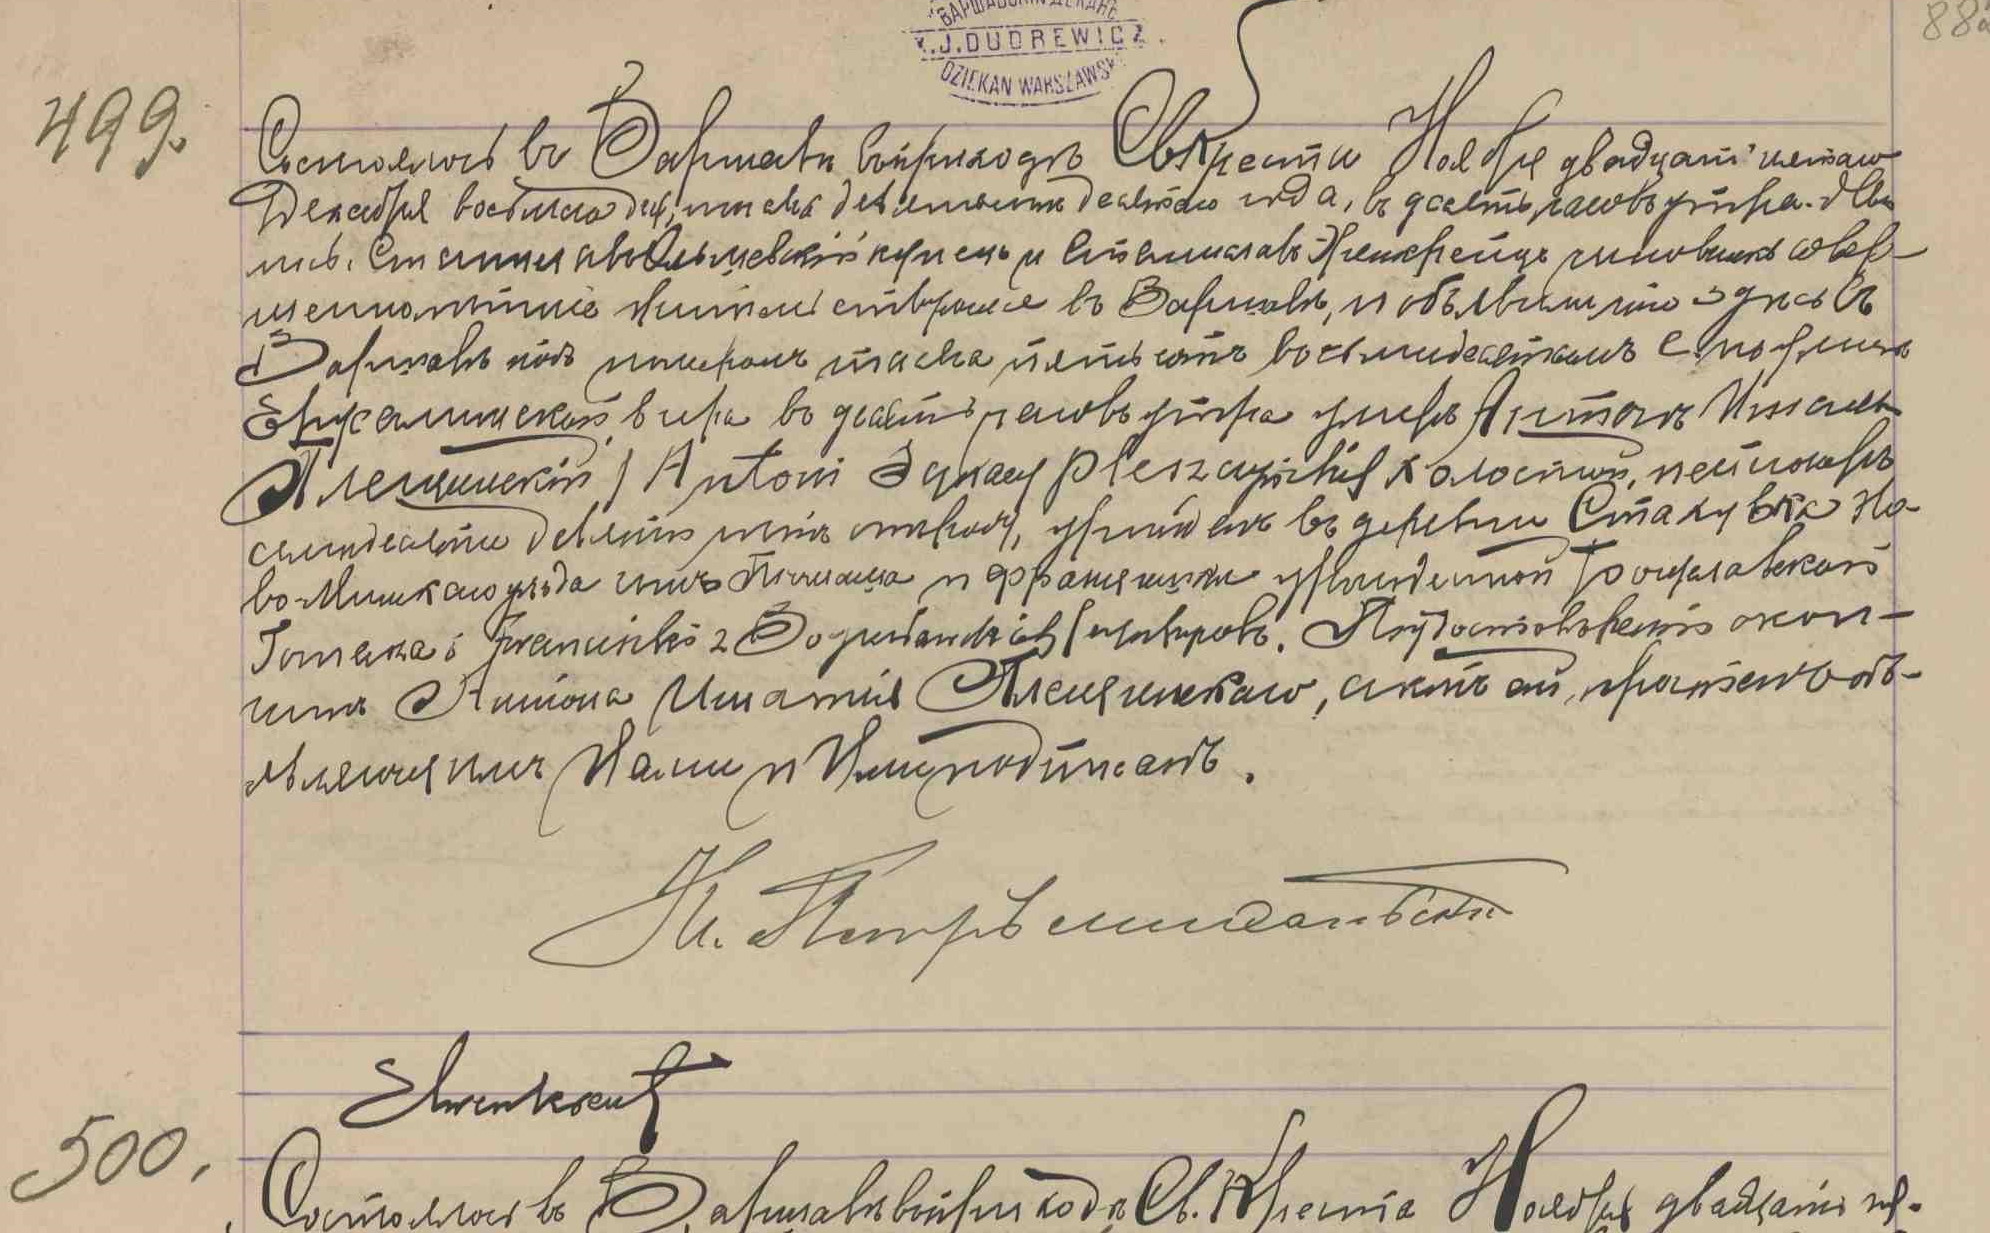 ВАРШАВСКІЙ ДЕКАНЪ
X.J.DUDREWICZ.
DZIEKAN WARSZAWSKI
88
499.
Состоялось въ Варшавѣ въ приходѣ Св Креста Ноября двадцать шестаго
Декабря восьмаго дня, тысяча девятьсотъ десятаго года, въ десять часовъ утра. Яви
лись. Станиславъ купецъ и Станиславъ чиновникъ совер-
шеннолѣтніе жительствующіе въ Варшавѣ, и объявили что здѣсь въ
Варшавѣ подъ номеромъ тысяча пятьсотъ восьмидесятымъ С. по улицѣ
Ерусалимской вчера въ десять часовъ утра умеръ Антонъ Игнатій
Плещинскій / Antoni Ignacy Pleszczyński / холостой, пенсіонеръ
семидесяти девяти лѣтъ отъ роду, урожденъ въ деревни Стакувка Но-
во-Минскаго уѣзда сынъ Томаша и Францишки урожденной Богуславской
Tomasza i Franciszki z супруговъ. По удостовѣреніи окон-
чинѣ Антона Игнатія Плещинскаго, актъ сей, прочтенъ объ-
являющимъ Нами и Ими подписанъ.
500.
Состоялось въ Варшавѣ въ приходѣ Св. Креста Ноября двадцать